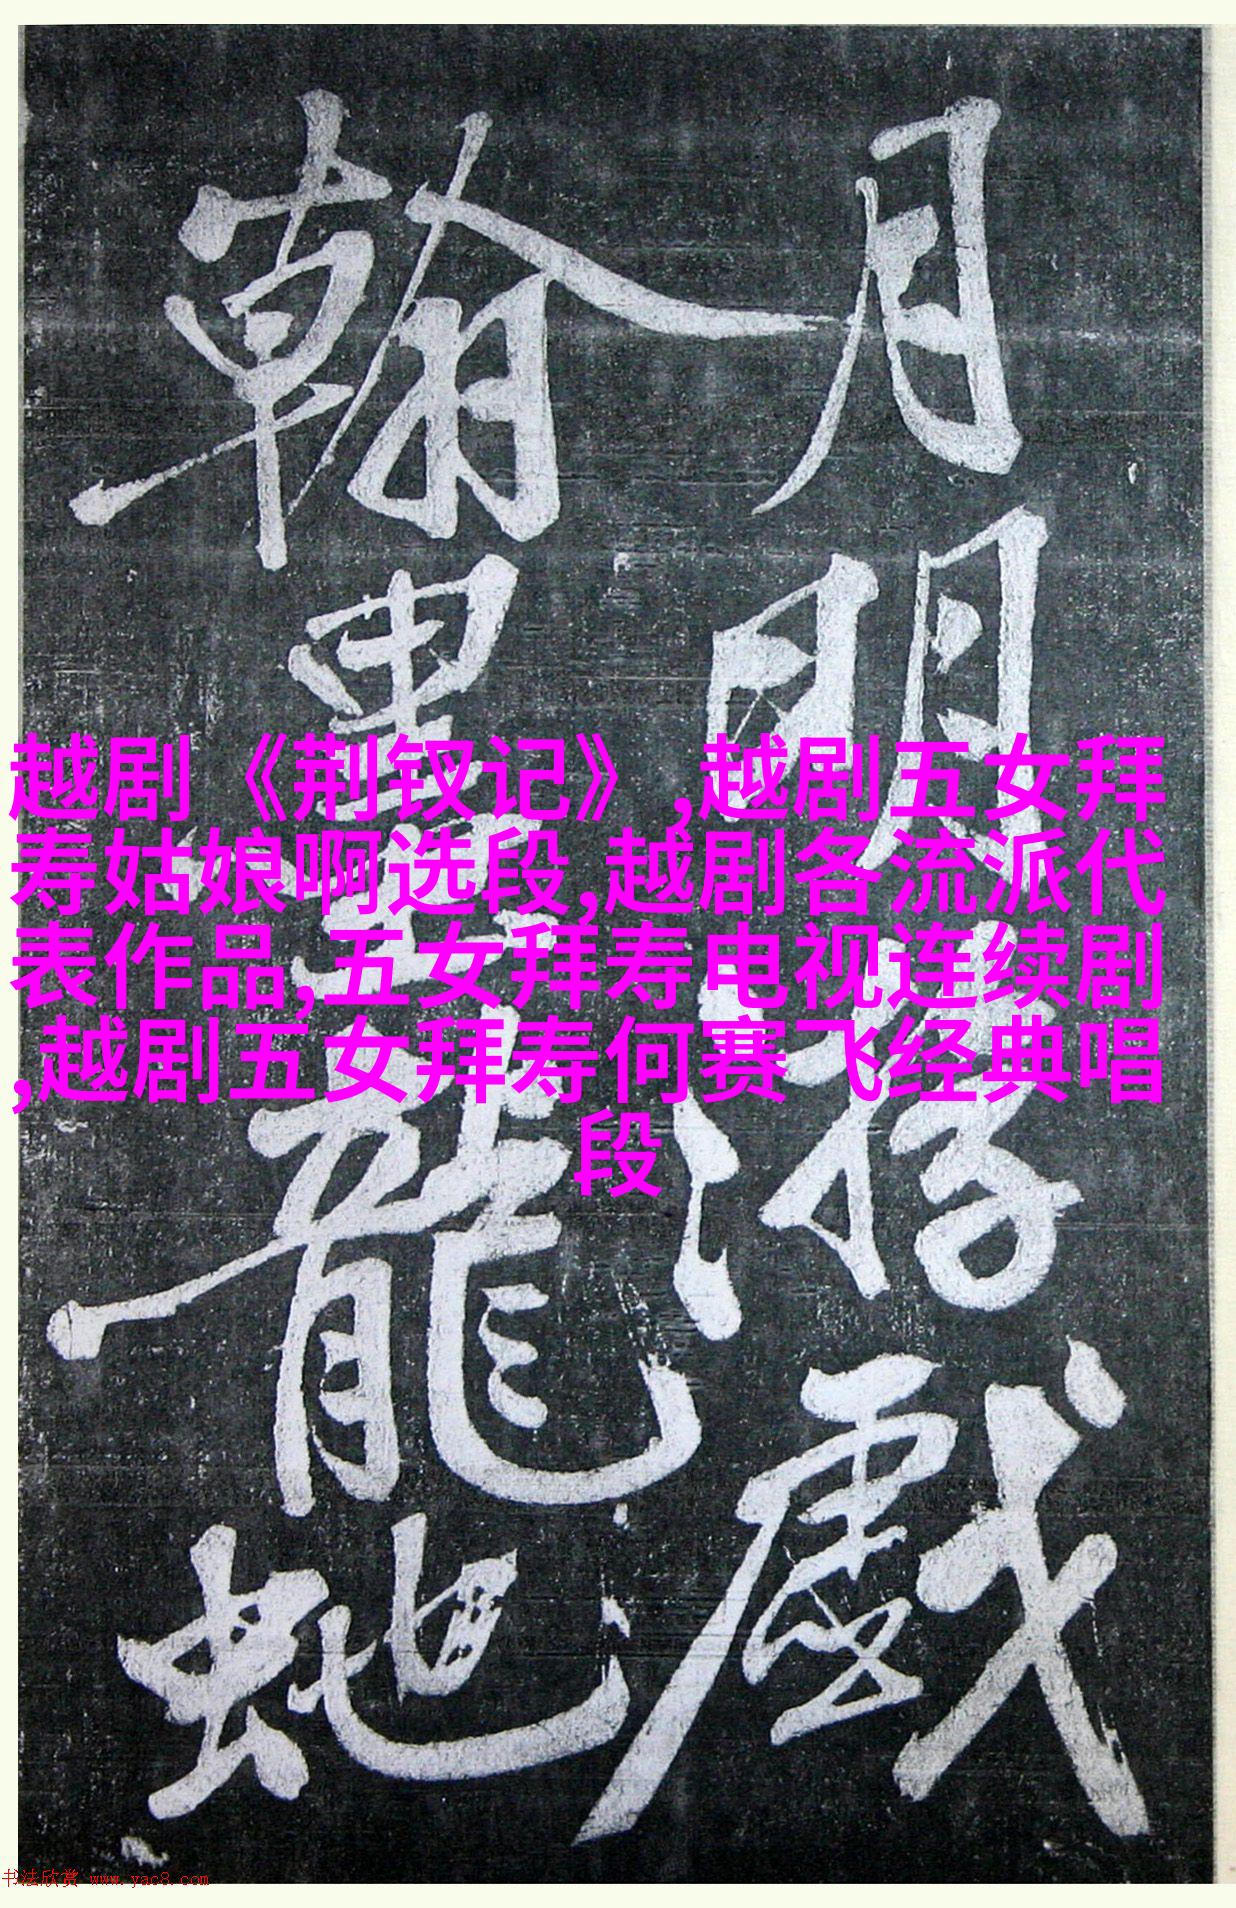 月明游戲
翰墨龍蛇
越剧《荆钗记》,越剧五女拜
寿姑娘啊选段,越剧各流派代
表作品,五女拜寿电视连续剧
,越剧五女拜寿何赛飞经典唱
段
书法欣赏 www.yac8.com